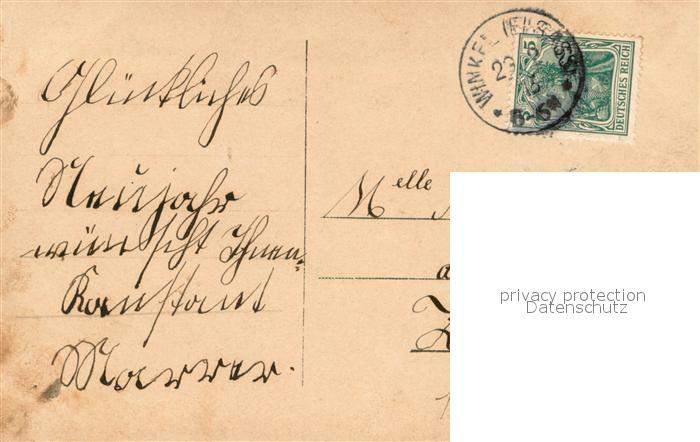 Glückliches
Neujahr
wünscht Ihnen.
Konstant
Marrer.
WINKEL (ELSASS)
DEUTSCHES REICH
5
Melle
privacy protection
Datenschutz